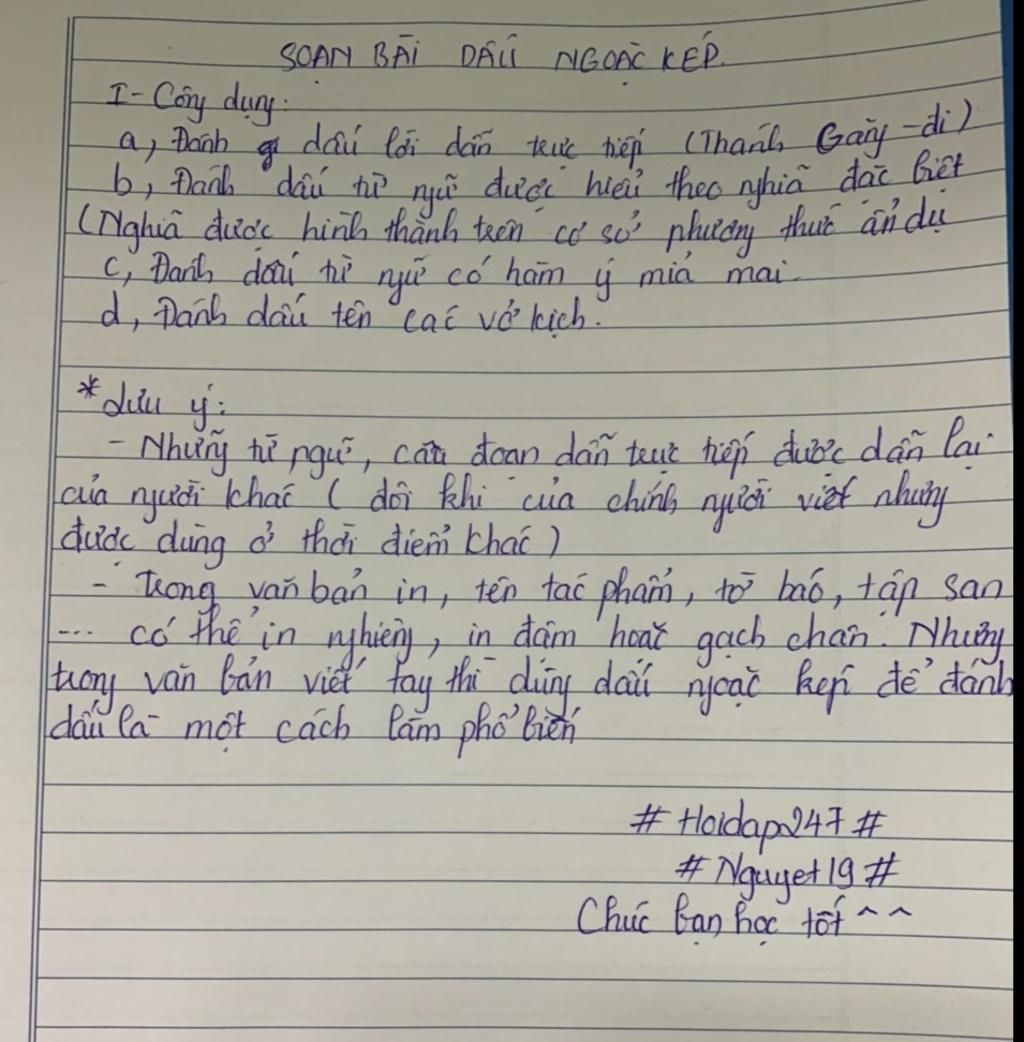 SOẠN BÀI DẤU NGOẶC KÉP.
I - Công dụng:
a, Đánh dấu lời dẫn trực tiếp (Thánh Găng-đi)
b, Đánh dấu từ ngữ được hiểu theo nghĩa đặc biệt
(Nghĩa được hình thành trên cơ sở phương thức ẩn dụ
c, Đánh dấu từ ngữ có hàm ý mỉa mai.
d, Đánh dấu tên các vở kịch.
* Lưu ý:
- Những từ ngữ, câu đoạn dẫn trực tiếp được dẫn lại
của người khác ( đôi khi của chính người viết nhưng
được dùng ở thời điểm khác)
- Trong văn bản in, tên tác phẩm, tờ báo, tập san
... có thể in nghiêng, in đậm hoặc gạch chân. Nhưng
trong văn bản viết tay thì dùng dấu ngoặc kép để đánh
dấu là một cách làm phổ biến
# Hoidap247 #
# Nguyet19 #
Chúc bạn học tốt ^^